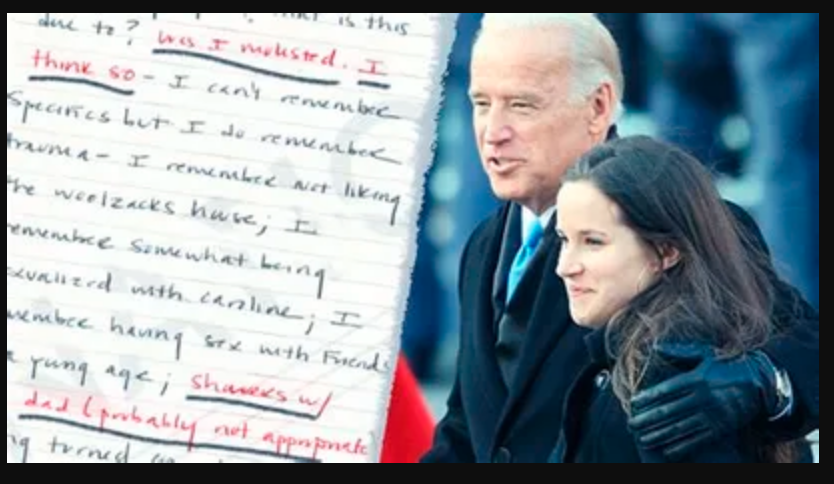 is this
due to? Was I molested. I
think so - I can't remember
specifics but I do remember
trauma - I remember not liking
the woolzacks house; I
emember somewhat being
exualized with caroline; I
member having sex with friends
a young age; showers w/
dad (probably not appropriate
turned